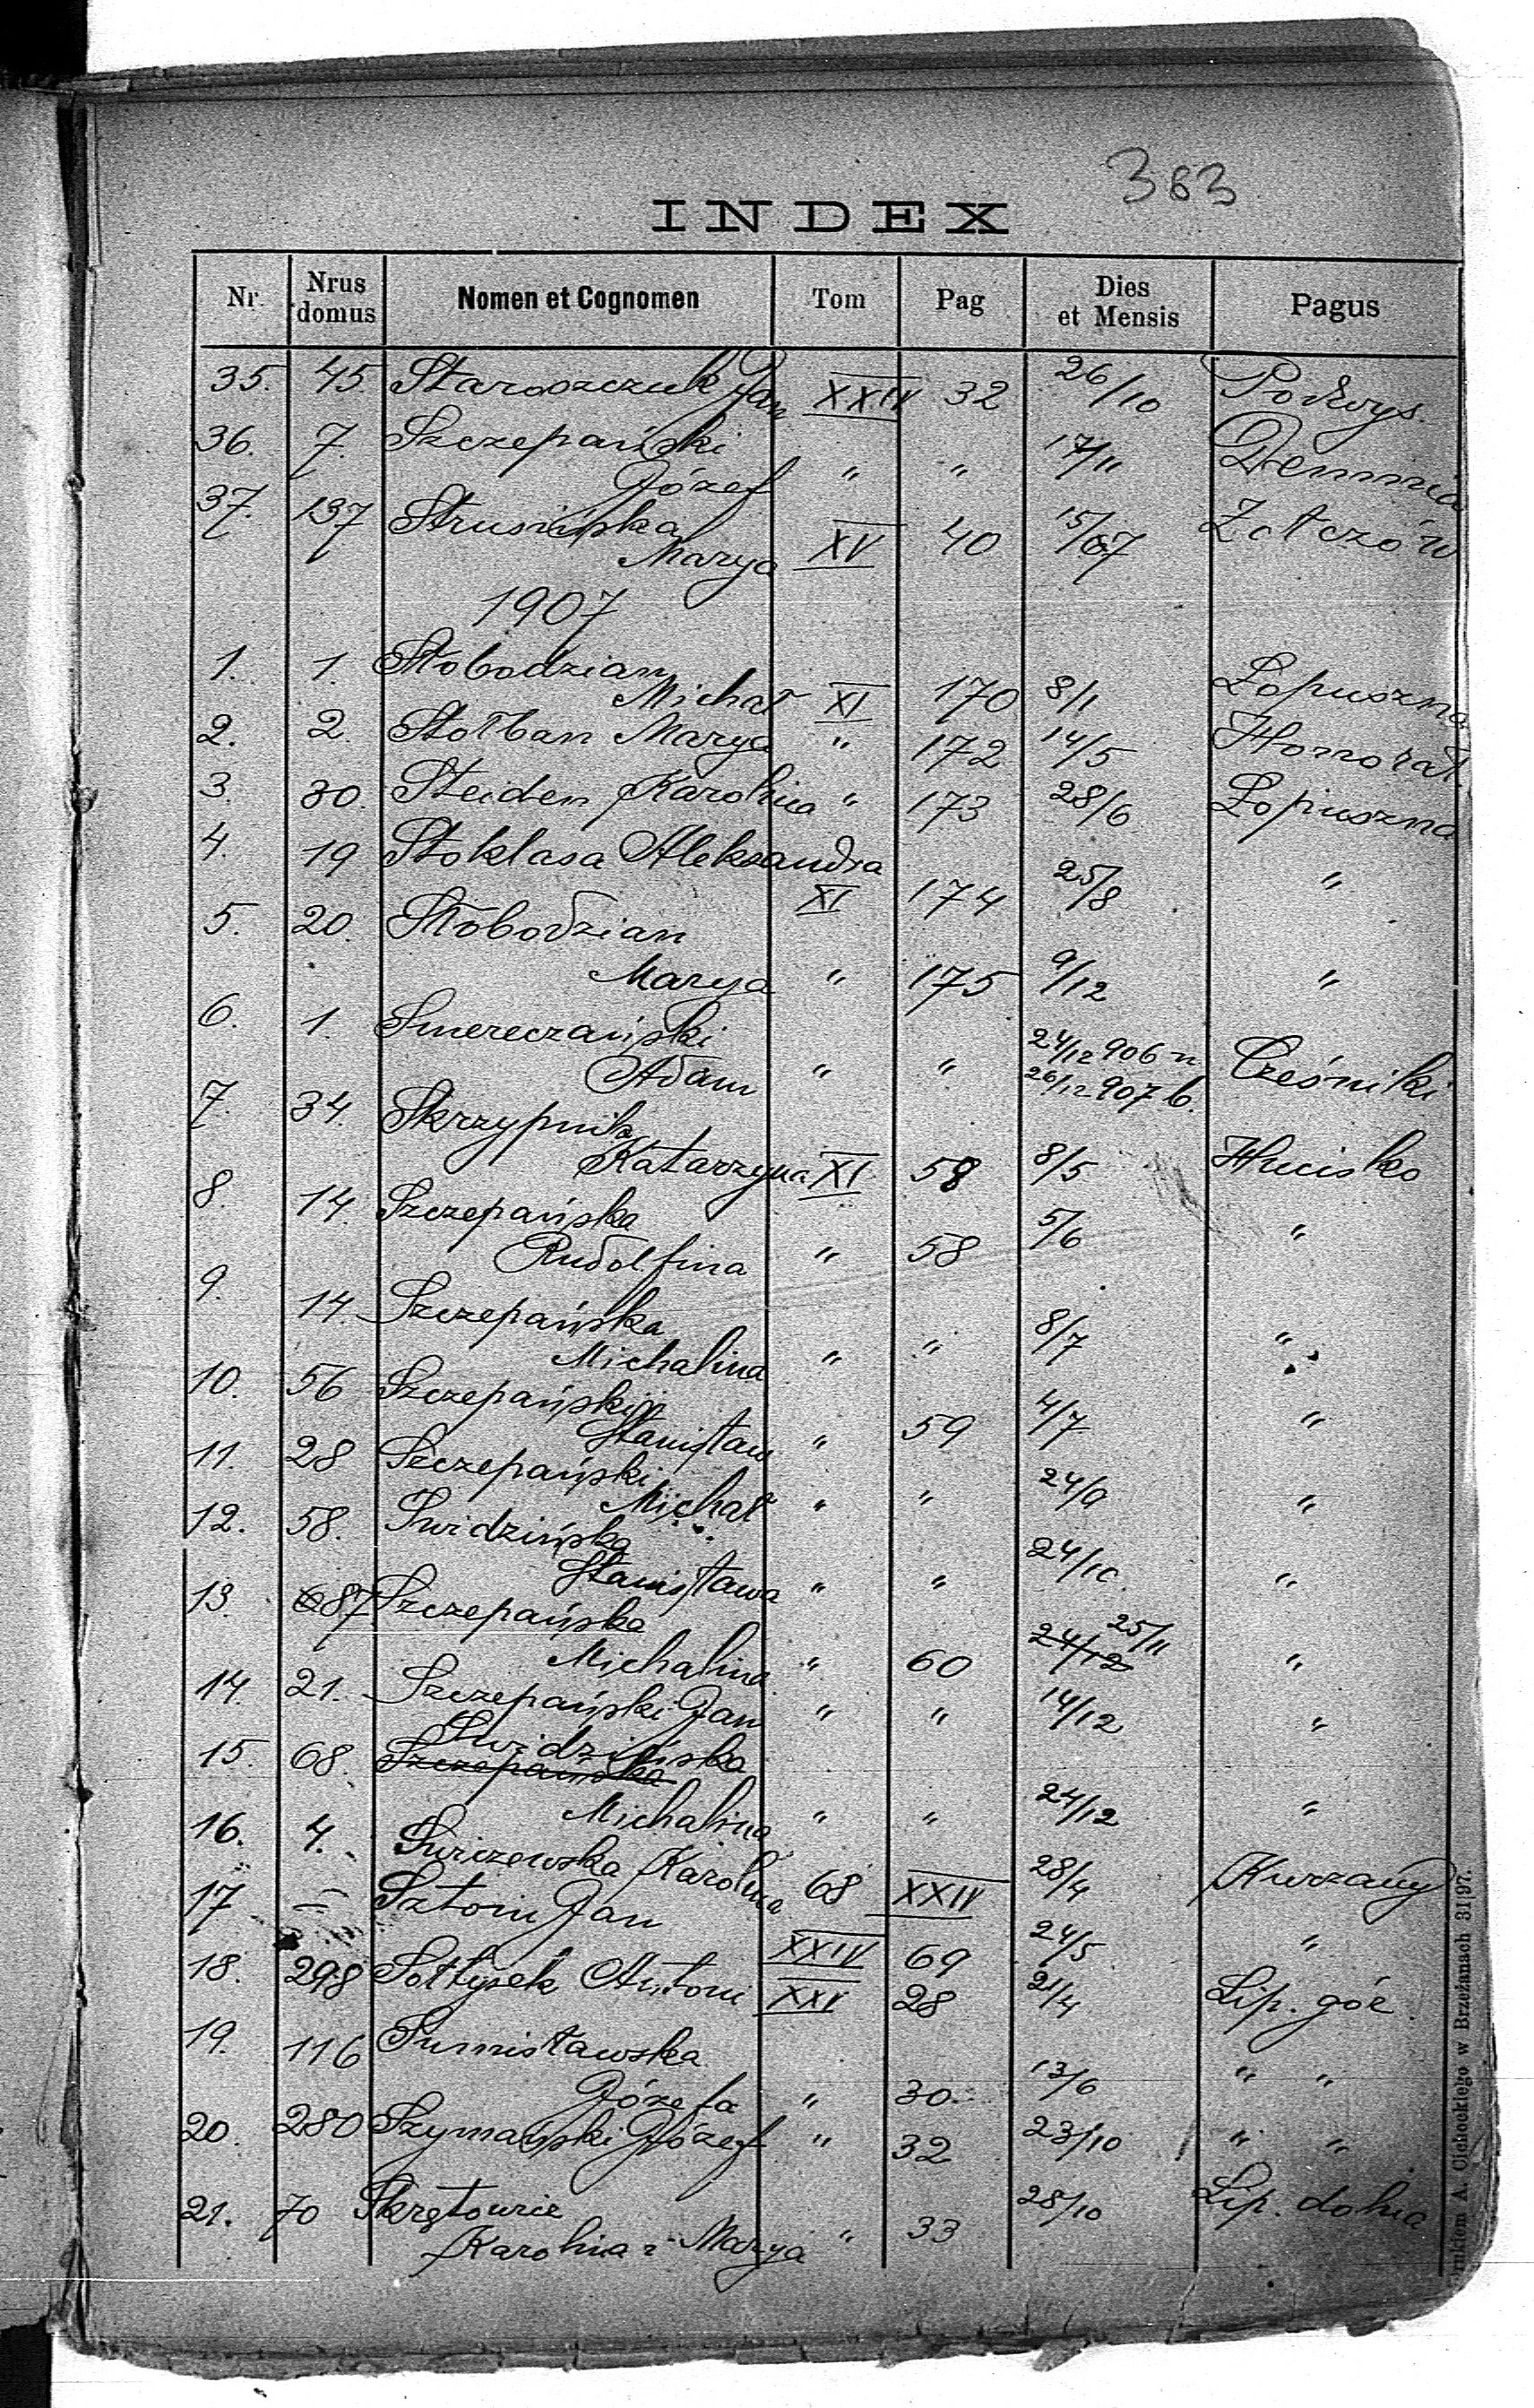 363
INDEX
Nr. Nrus domus Nomen et Cognomen Tom Pag Dies et Mensis Pagus
35. 45 Staroszczuk Jan XXIV 32 26/10 Podwys.
36. 7. Szczepański
Józef " " 17/11 Demnia
37. 137 Strusińska
Marya XV 40 15/67 Zołczów
1907
1. 1. Słobodzian
Michał XI 170 8/1 Łopuszna
2. 2. Stołban Marya " 172 14/5 Honorat.
3. 30. Steiden Karolina " 173 28/6 Łopuszna
4. 19 Stoklasa Aleksandra
XI 174 25/8 "
5. 20. Słobodzian
Marya " 175 9/12 "
6. 1. Smereczański
Adam " " 24/12 906 n. 26/12 907 b. Cześniki
7. 34. Skrzypnik
Katarzyna XI 58 8/5 Hucisko
8. 14. Szczepańska
Rudolfina " 58 5/6 "
9. 14. Szczepańska
Michalina " " 8/7 "
10. 56 Szczepański
Stanisław " 59 4/7 "
11. 28 Szczepański
Michał " " 24/9 "
12. 58. Swidzińska
Stanisława " " 24/10. "
13. 87 Szczepańska
25/11
Michalina " 60 24/12 "
14. 21. Szczepański Jan " " 14/12 "
Swidzińska
15. 68. Szczepańska
Michalina " " 24/12 "
16. 4. Swiczewska Karolina 68 XXIV 28/4 Kurzany
17 = Sztoni Jan XXIV 69 24/5 "
18. 298 Sołtysek Antoni XXV 28 21/4 Lip. gór.
19. 116 Sumisławska
Józefa " 30. 13/6 " "
20. 280 Szymański Józef " 32 23/10 " "
21. 70 Skrętowicz
Karolina i Marya " 33 28/10 Lip. dolna
Drukiem A. Cichockiego w Brzeżanach 31|97.